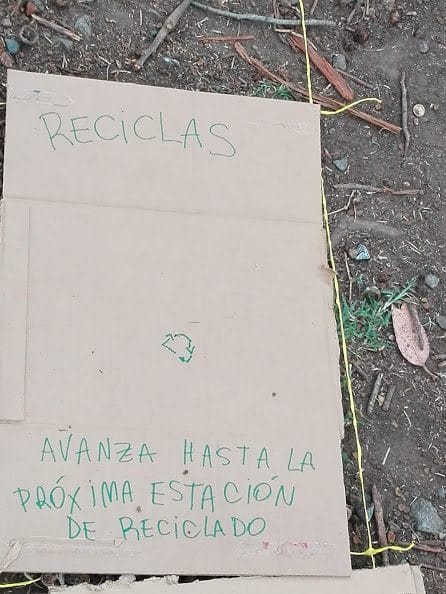 RECICLAS
AVANZA HASTA LA
PRÓXIMA ESTACIÓN
DE RECICLADO